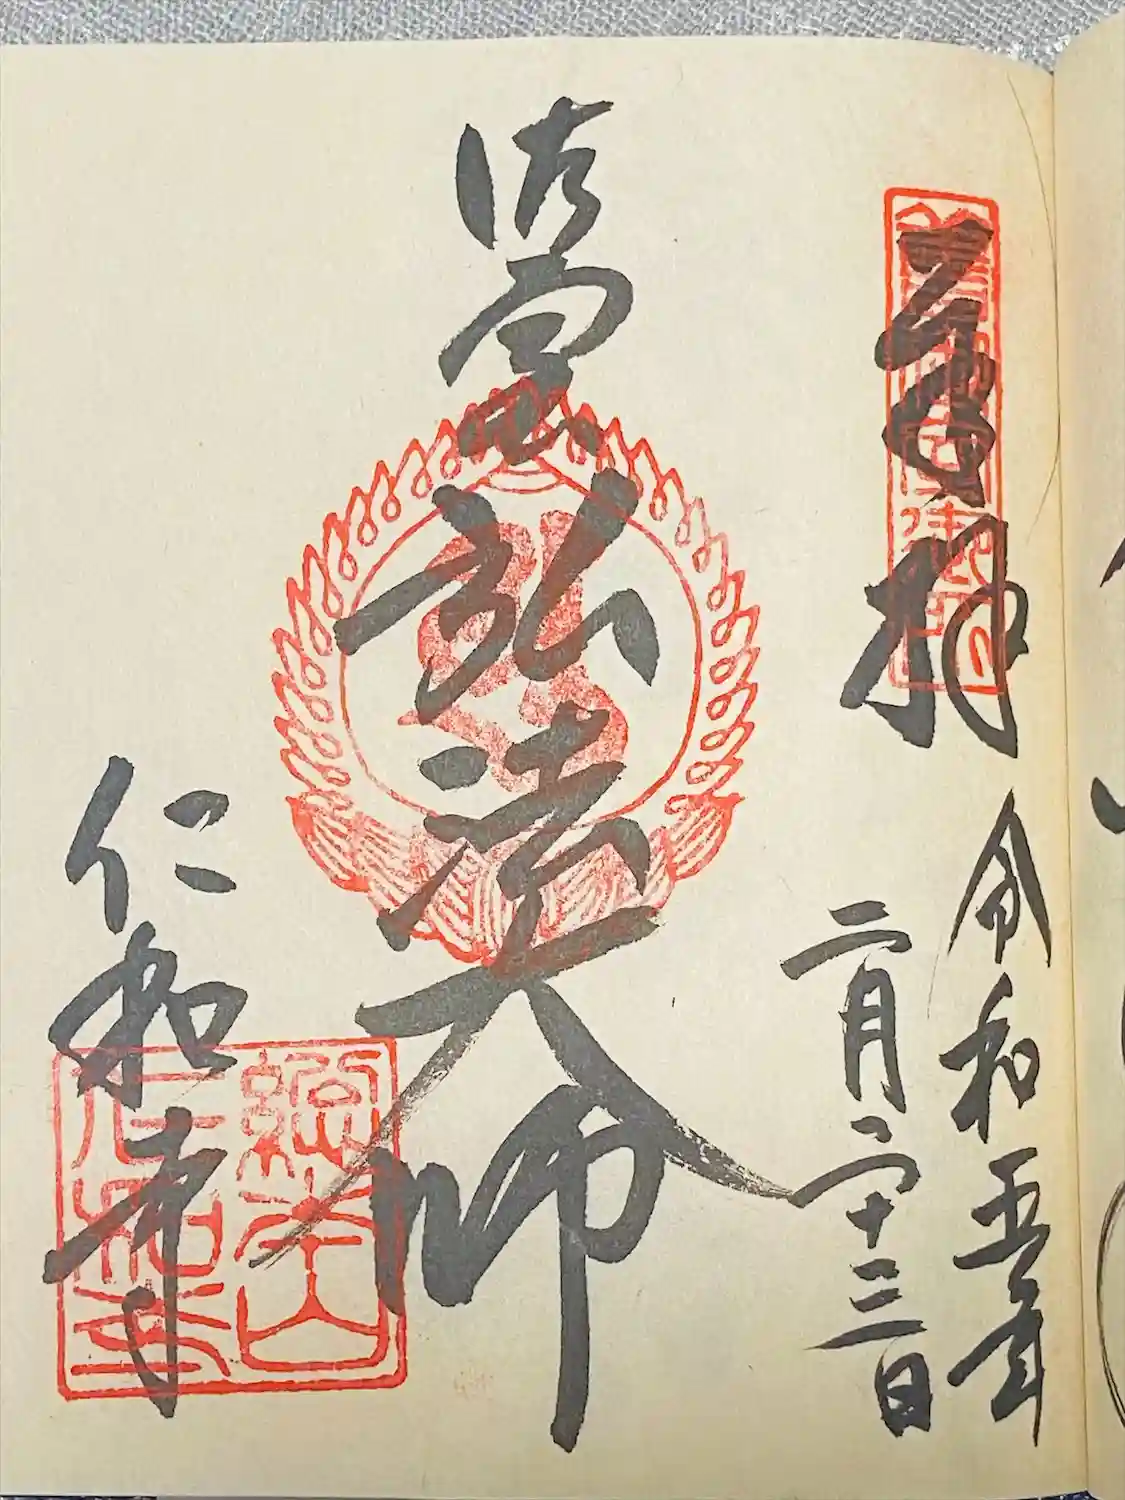 奉拝
令和五年
二月二十三日
御室
弘法大師
仁和寺
総本山
仁和寺